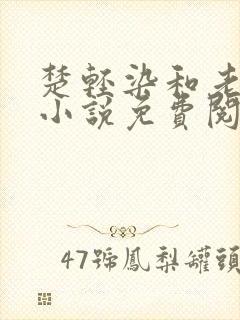 楚軽染和老
小說免費閱
47號鳳梨罐頭